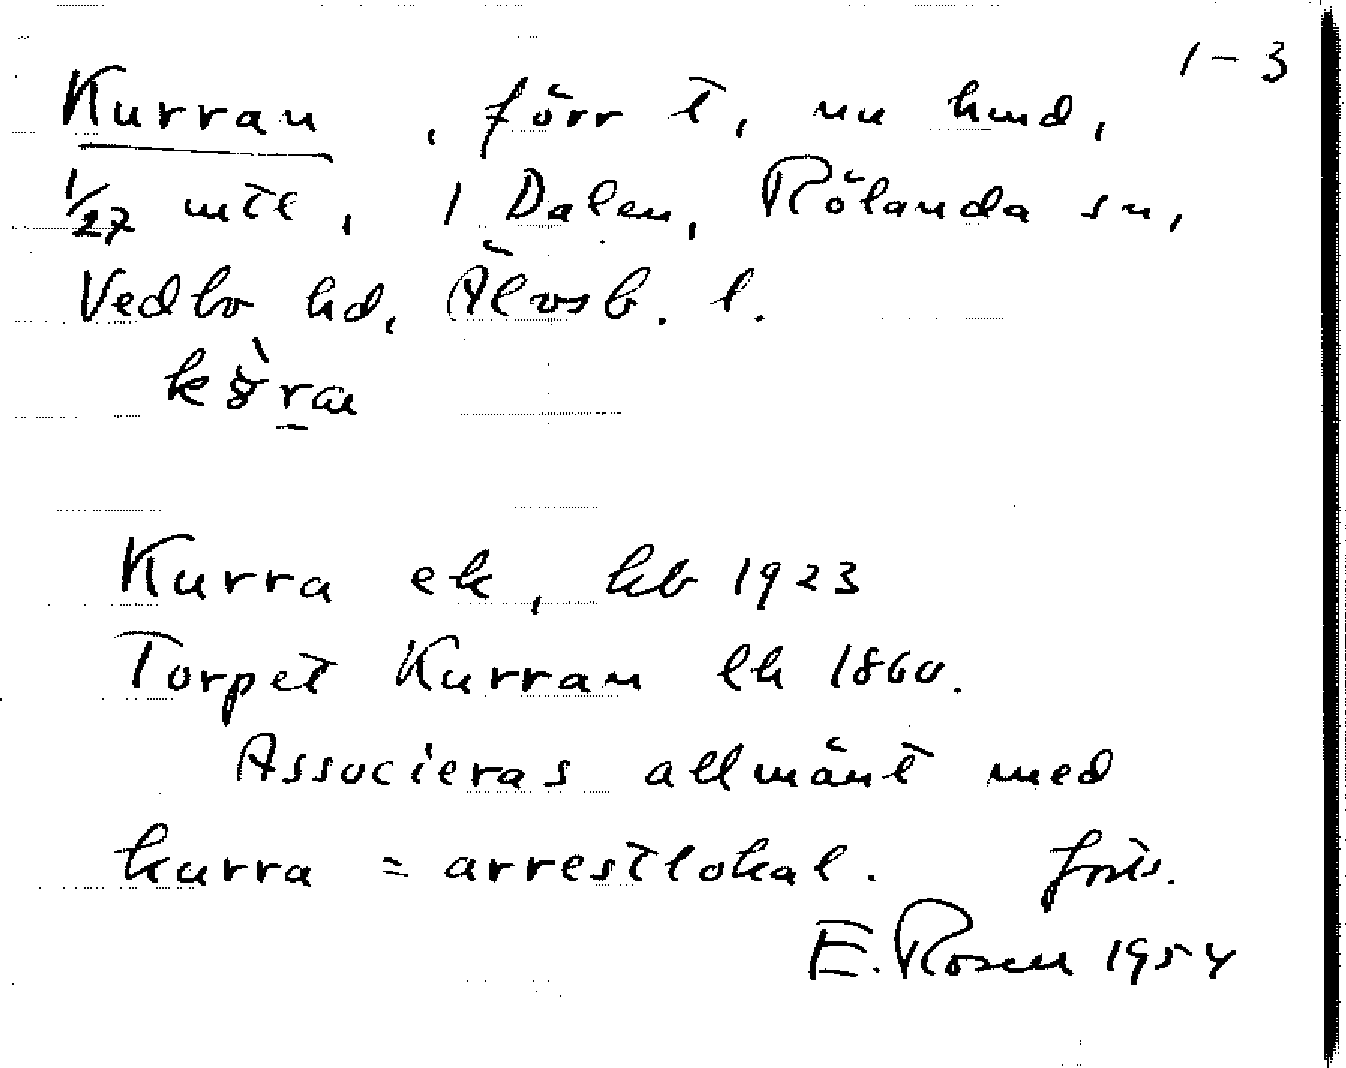 1-3
Kurran, förr t, nu hmd,
1/27 mtl, 1 Dalen, Rölanda sn,
Vedbo hd, Älvsb. l.
Kurra ek, kb 1923
Torpet Kurran lh 1860.
Associeras allmänt med
kurra = arrestlokal. forts.
E. Rosen 1954